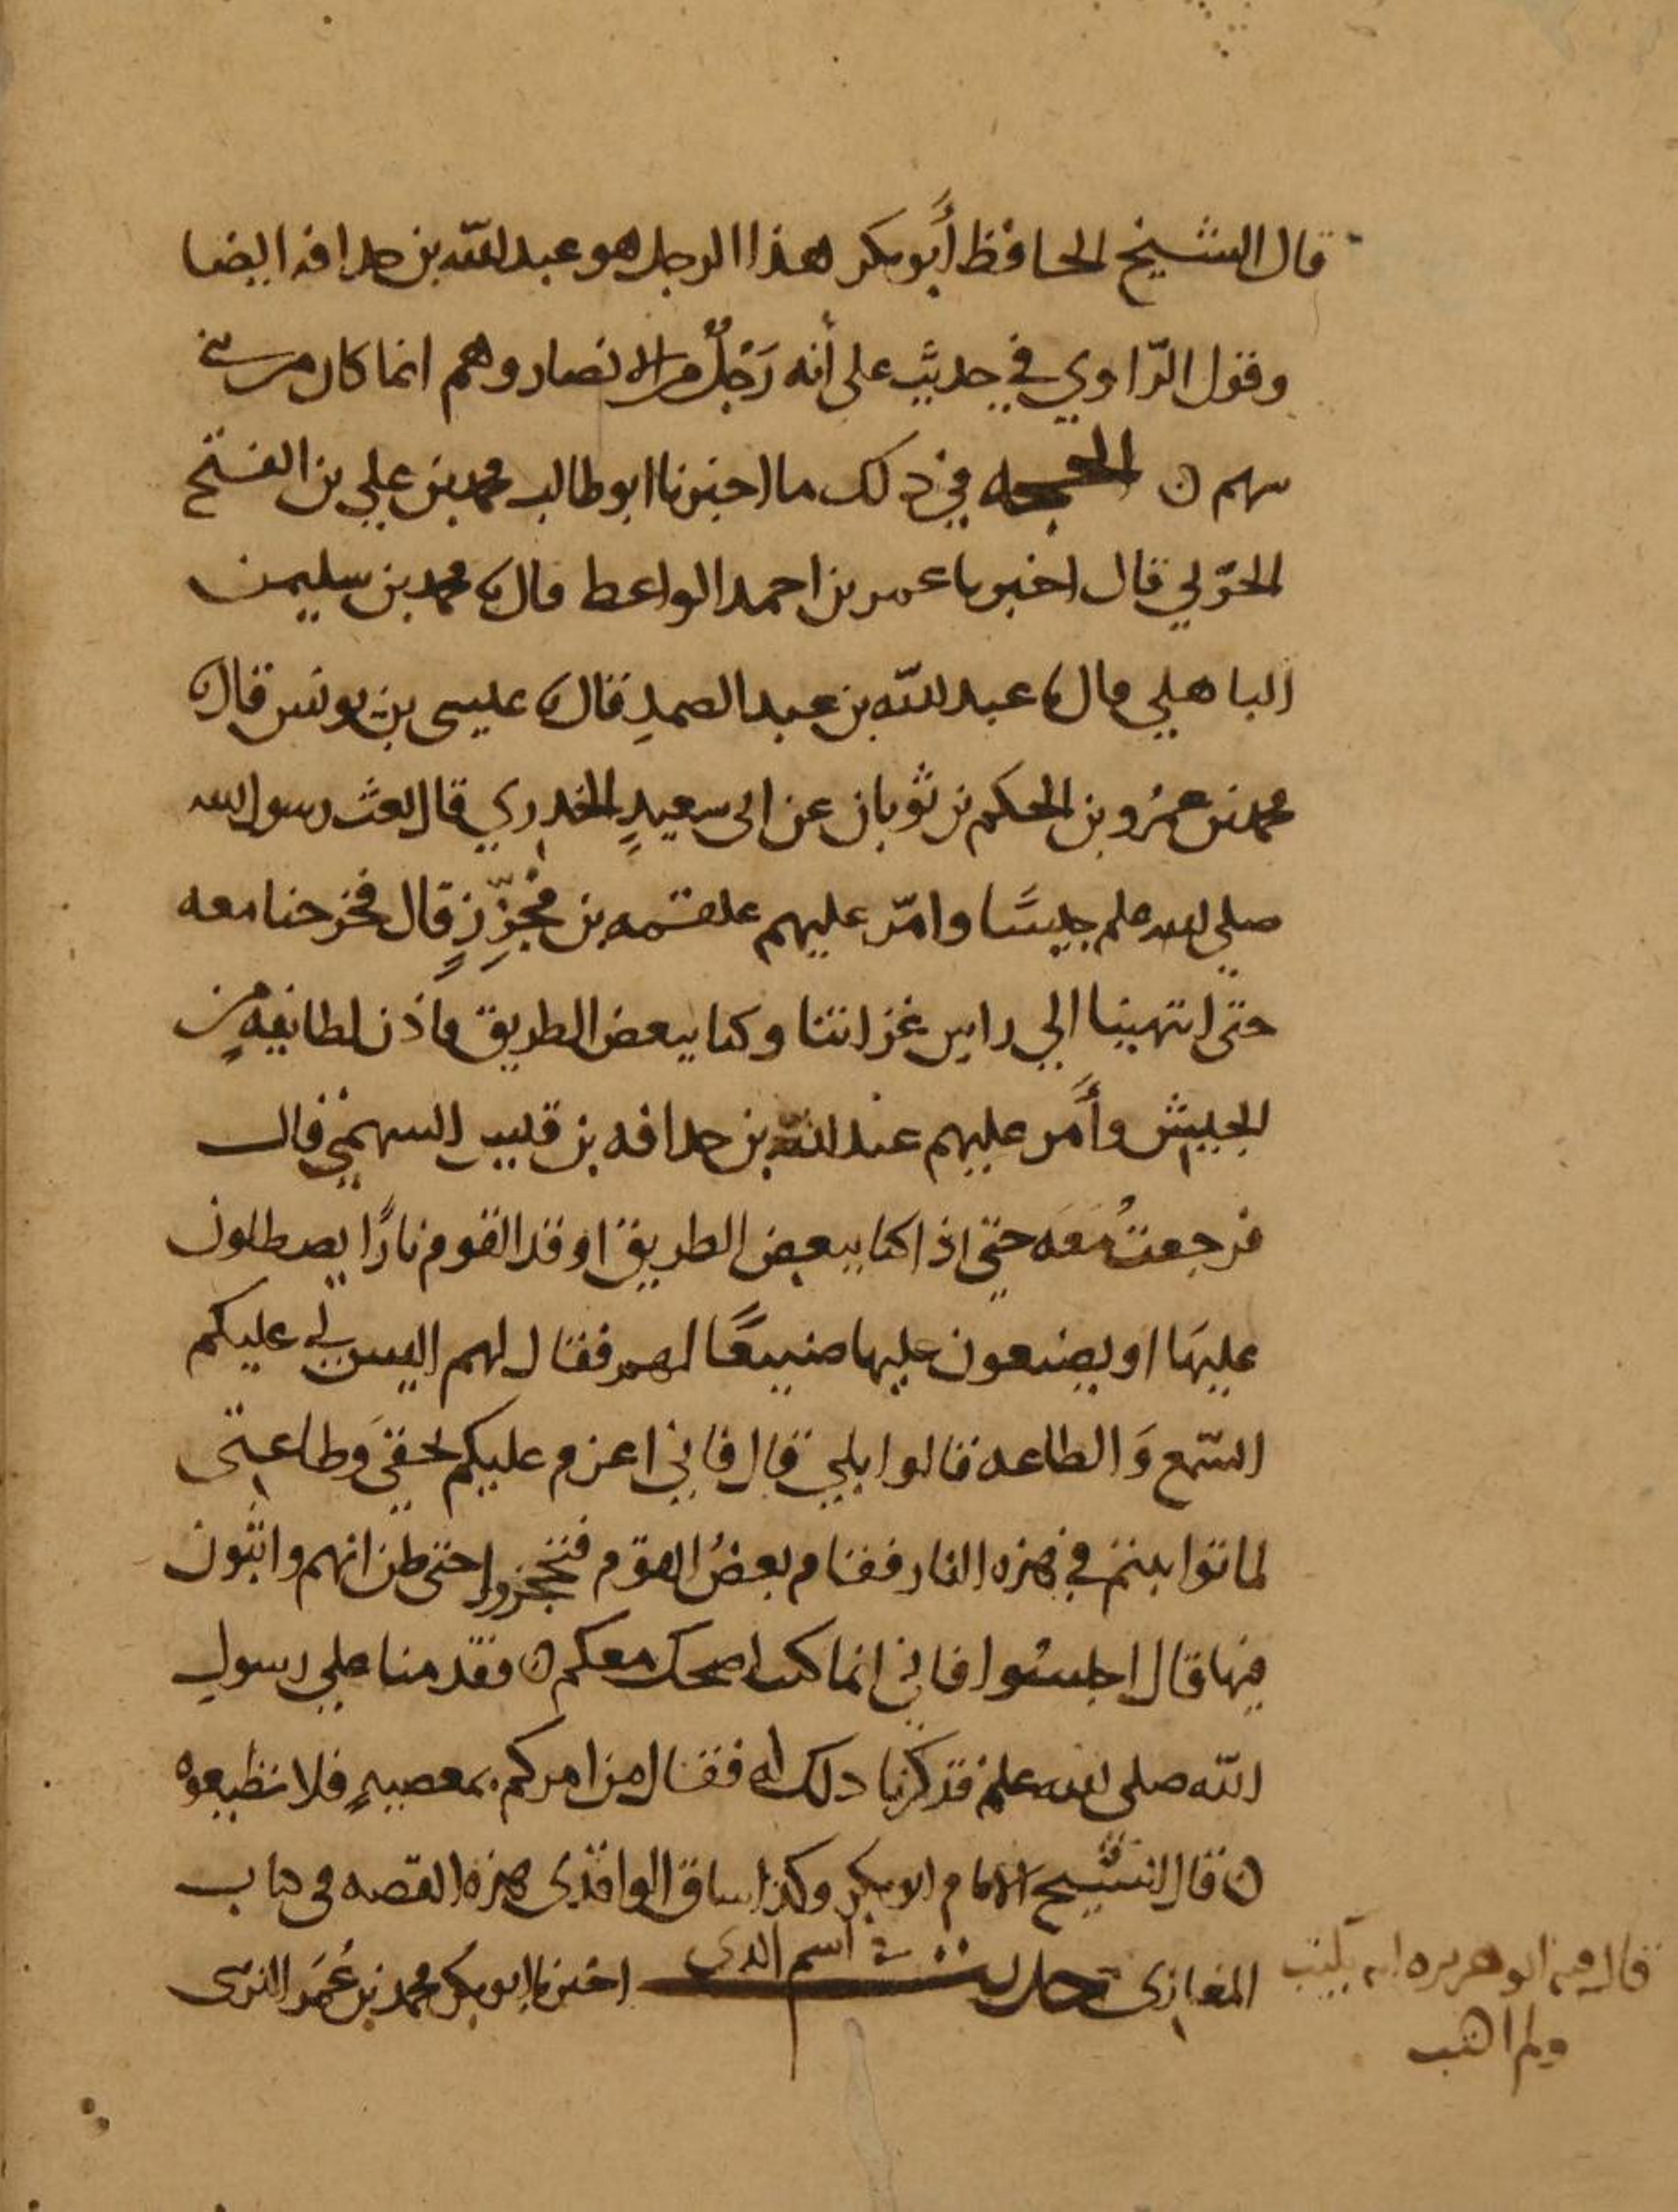 قال الشيخ الحافظ أبو بكر هذا الرجل هو عبد الله بن حذافه ايضا
وقول الرّاوي في حديث علي أنه رَجُلٌ من الانصار وهم انما كان من بني
سهم ن الحجه في ذلك ما اخبرنا ابو طالب محمد بن علي بن الفتح
الحربي قال اخبرنا عمر بن احمد الواعظ قال نا محمد بن سليمن
الباهلي قال نا عبد الله بن عبد الصمدِ قال نا عيسى بن يونس قال نا
محمد بن عمرو بن الحكم بن ثوبان عن ابي سعيدٍ الخدري قال بعث رسول الله
صلى الله علم جيشًا وامّر عليهم علقمه بن مُجَزِّزٍ قال فخرجنا معه
حتى انتهينا الي راس غزاتنا وكنا ببعض الطريق فأذن لطايفهٍ من
الجيش وأمَّر عليهم عبد الله بن حذافه بن قيس السهمي قال
فرجعتُ مَعَه حتى اذا كنا ببعض الطريق اوقد القوم نارًا يصطلون
عليهَا او يصنعون عليها صنيعًا لهم فقال لهم اليس لي عليكم
السّمع وَالطاعه قالوا بلي قال فاني اعزم عليكم لحقي وَطاعتى
لما تواثبتم في هذه النار فقام بعضُ القوم فتحجزوا حتى ظن انهم واثبون
فيها قال اجلسُوا فاني انما كنت اضحك معكم ن فقدمنا علي رسول
الله صلى الله علم فذكرنا ذلك له فقال من امركم بمعصيهٍ فلا تطيعوه
ن قال الشيخ الامام ابو بكر وكذا ساق الواقدى هذه القصه فى كتاب
المغازى حديث اسم الذى اخبرنا ابو بكر محمد بن عُمَر النرسى
قال فيه ابو هريره انه يكتب
ولم اكتب